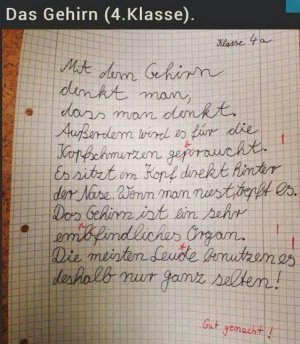 Das Gehirn (4.Klasse).
Klasse 4a
Mit dem Gehirn
denkt man,
dass man denkt.
Außerdem wird es für die
Kopfschmerzen gebraucht.
Es sitzt im Kopf direkt hinter
der Nase. Wenn man niest, tropft es.
Das Gehirn ist ein sehr
embfindliches Organ.
Die meisten Leude benutzen es
deshalb nur ganz selten!
Gut gemacht!